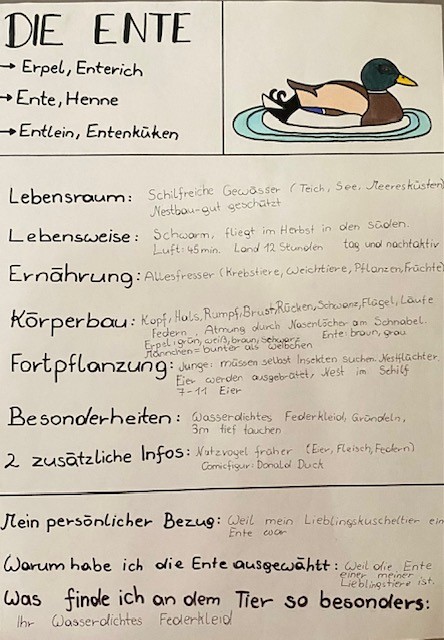 DIE ENTE
→ Erpel, Enterich
→ Ente, Henne
→ Entlein, Entenküken
Lebensraum: Schilfreiche Gewässer (Teich, See, Meeresküsten)
Nestbau-gut geschützt
Lebensweise: Schwarm, fliegt im Herbst in den Süden.
Luft: 45min. Land 12 Stunden tag und nachtaktiv
Ernährung: Allesfresser (Krebstiere, Weichtiere, Pflanzen, Früchte)
Körperbau: Kopf, Hals, Rumpf, Brust, Rücken, Schwanz, Flügel, Läufe
Federn. Atmung durch Nasenlöcher am Schnabel.
Erpel: grün, weiß, braun, schwarz Ente: braun, grau
Männchen = bunter als Weibchen
Fortpflanzung: Junge: müssen selbst Insekten suchen. Nestflüchter.
Eier werden ausgebrütet, Nest im Schilf
7-11 Eier
Besonderheiten: Wasserdichtes Federkleid, Gründeln,
3m tief tauchen
2 zusätzliche Infos: Nutzvogel früher (Eier, Fleisch, Federn)
Comicfigur: Donald Duck
Mein persönlicher Bezug: Weil mein Lieblingskuscheltier ein
Ente war
Warum habe ich die Ente ausgewählt: Weil die Ente
einer meiner
Lieblingstiere ist.
Was finde ich an dem Tier so besonders:
Ihr Wasserdichtes Federkleid